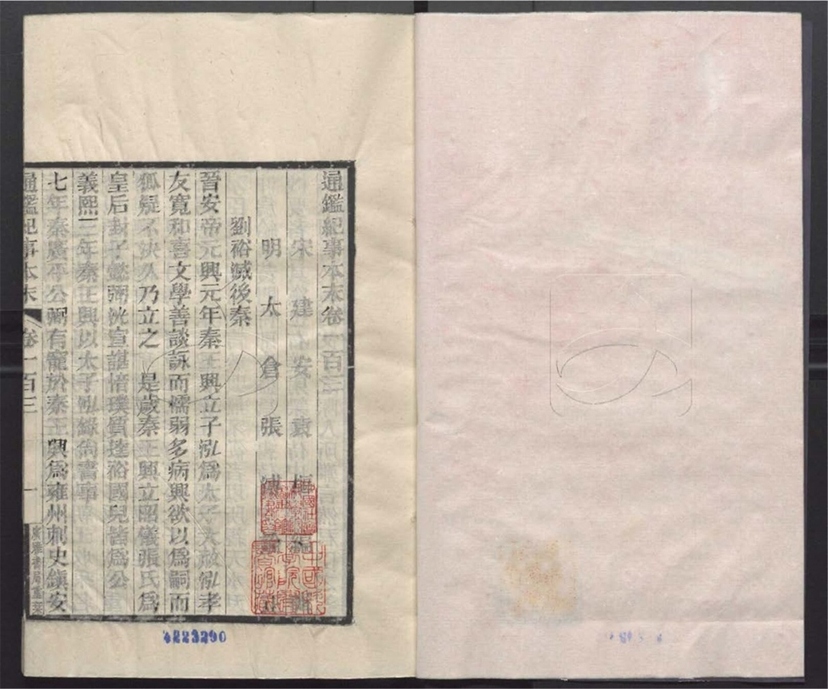 通鑑紀事本末卷一百三
宋建安袁樞
明太倉張溥
劉裕滅後秦
晉安帝元興元年秦王興立子泓爲太子大赦泓孝
友寬和喜文學善談詠而懦弱多病興欲以爲嗣而
狐疑不決久乃立之　是歲秦王興立昭儀張氏爲
皇后封子懿弼洸宣諶愔璞質逵裕國兒皆爲公
義熙三年秦王興以太子泓錄尚書事
七年秦廣平公弼有寵於秦王興爲雍州刺史鎮安
通鑑紀事本末
卷一百三
一
廣雅書局重
4223290